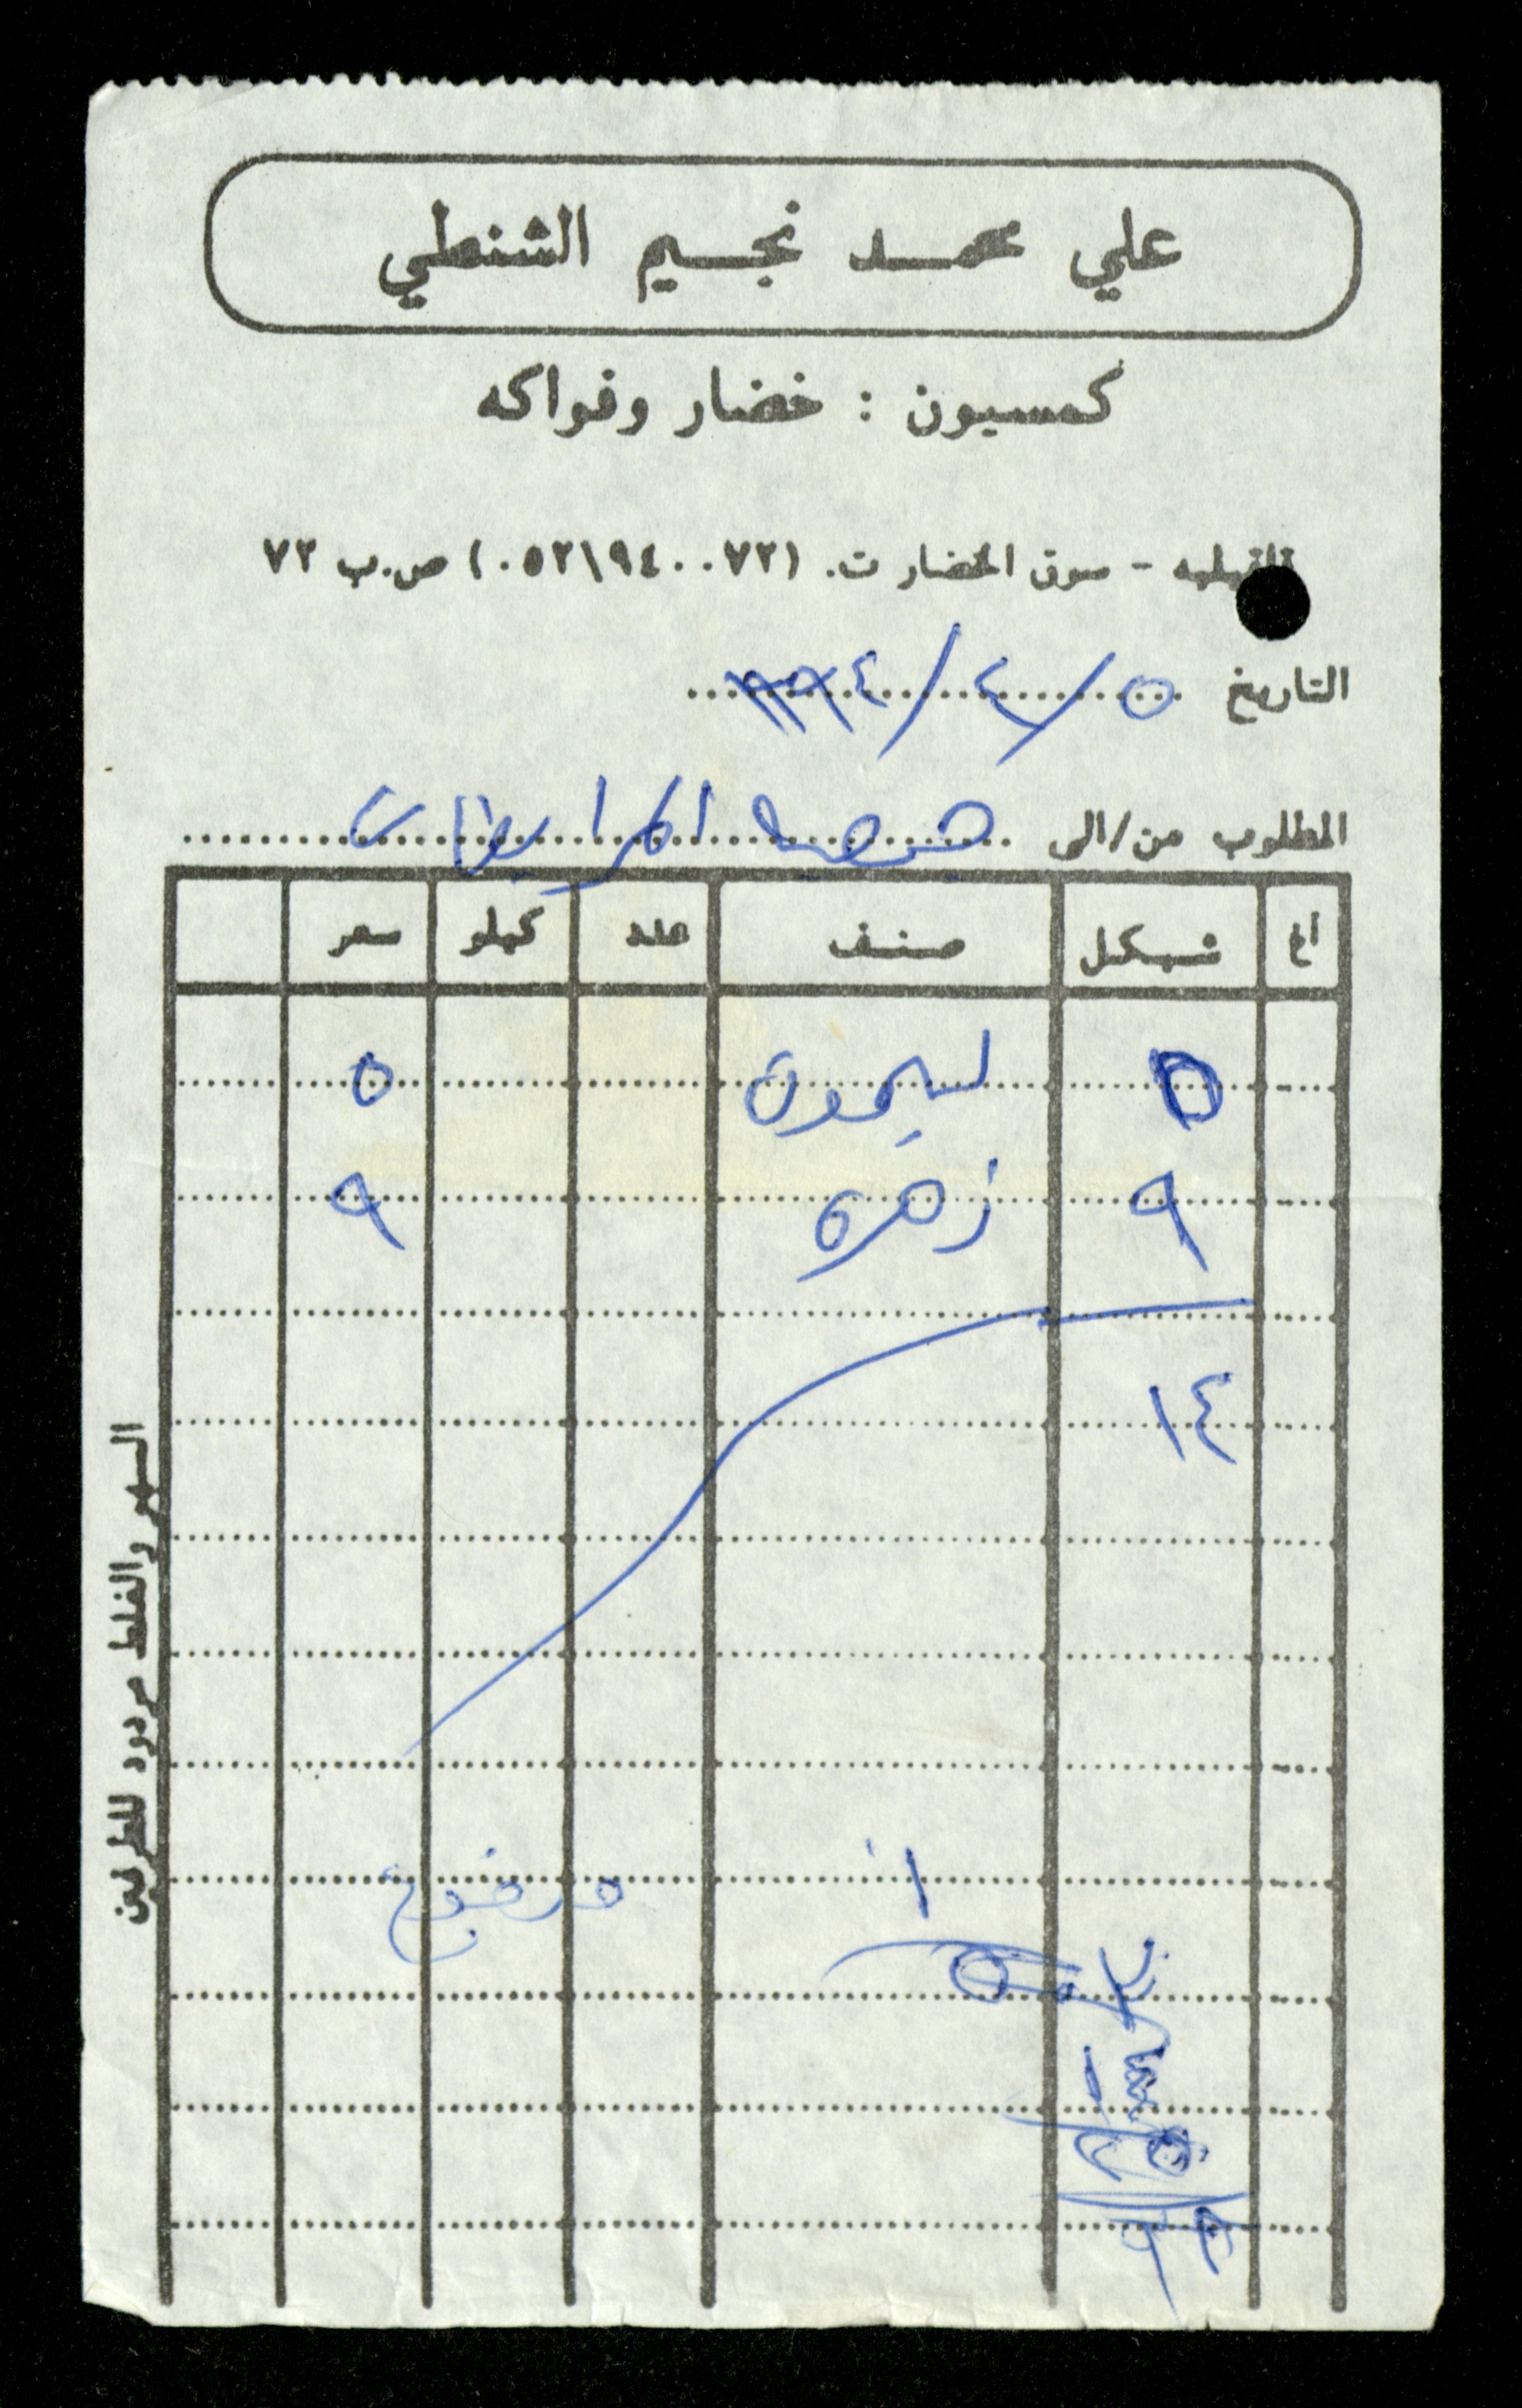 علي محمد نجيم الشنطي
كمسيون : خضار وفواكه
قلقيليه - سوق الخضار ت. (٠٥٢١٩٤٠٠٧٢) ص.ب ٧٢
التاريخ ٥/٤/١٩٩٤
المطلوب من/الى
اغ شيكل صنف عدد كيلو سعر
٥ ليمون ٥
٩ زهره ٩
١٤
مدفوع
السهو والغلط مردود للطرفين